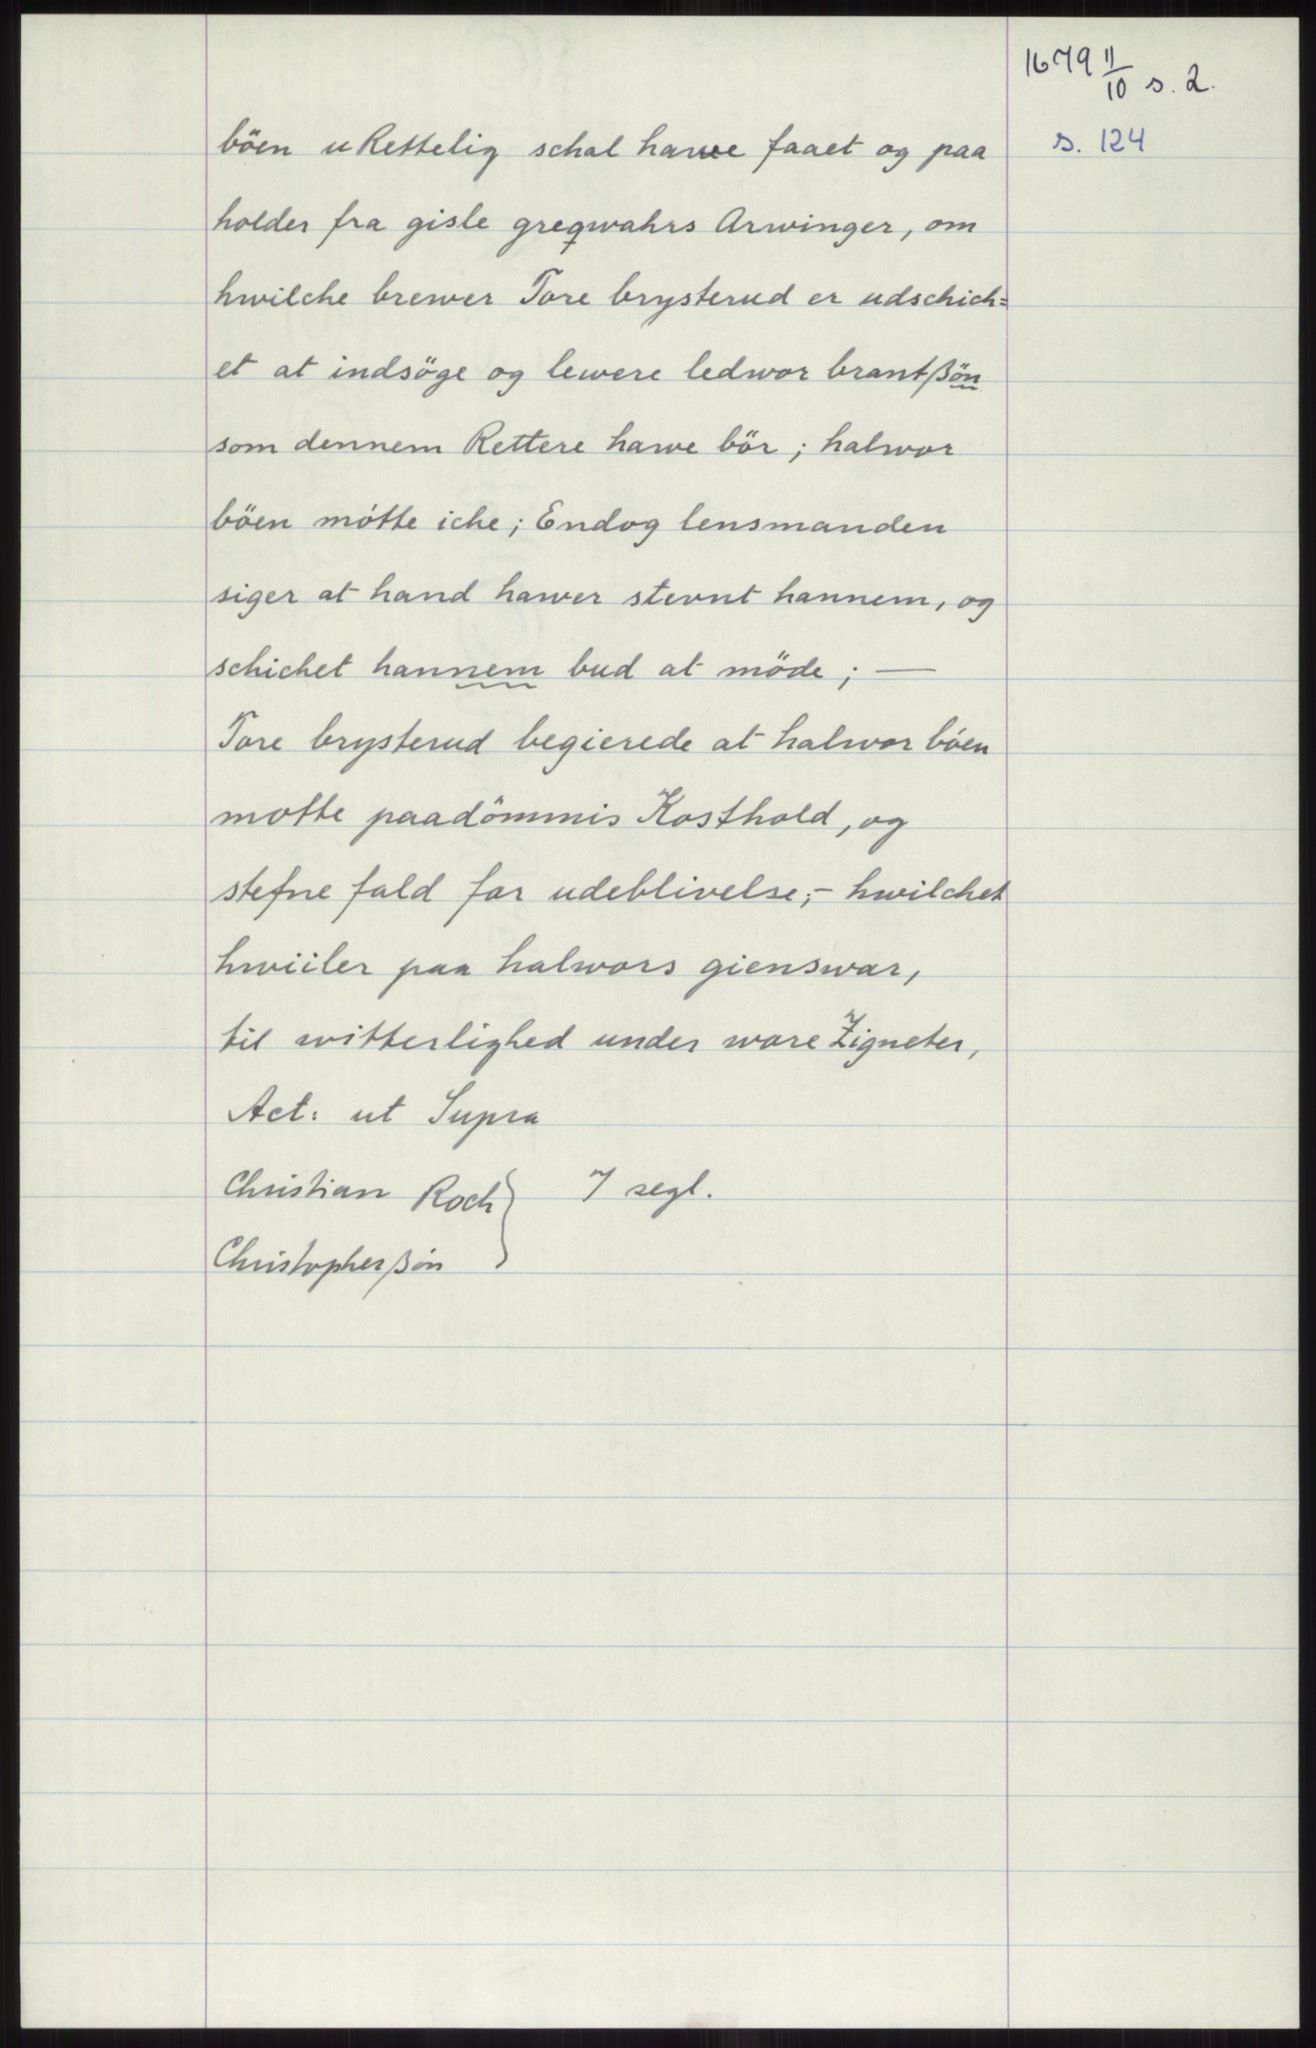 1679 11/10 s. 2.
s. 124
böen u Rettelig schal hawe faaet og paa
holder fra gisle greqwahrs Arwinger, om
hwilche brewer Tore brysterud er udschich=
et at indsöge og lewere ledwor brantßön
som dennem Rettere hawe bör; halwor
böen mötte iche; Endog lensmanden
siger at hand hawer stevnt hannem, og
schichet hannem bud at möde; —
Tore brysterud begierede at halwor böen
motte paadömmis Kosthold, og
stefne fald for udeblivelse;- hwilchet
hwiiler paa halwors gienswar,
til witterlighed under wore Zigneter,
Act: ut Supra
Christian Roch } 7 segl.
Christopherßön